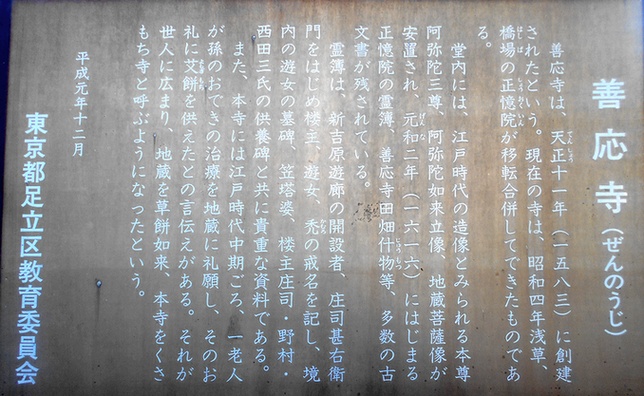 善応寺（ぜんのうじ）
善応寺は、天正十一年（一五八三）に創建
されたという。現在の寺は、昭和四年浅草、
橋場の正憶院が移転合併してできたものであ
る。
堂内には、江戸時代の造像とみられる本尊
阿弥陀三尊、阿弥陀如来立像、地蔵菩薩像が
安置され、元和二年（一六一六）にはじまる
正憶院の霊簿、善応寺田畑什物等、多数の古
文書が残されている。
霊簿は、新吉原遊廓の開設者、庄司甚右衛
門をはじめ楼主、遊女、禿の戒名を記し、境
内の遊女の墓碑、笠塔婆、楼主庄司・野村・
西田三氏の供養碑と共に貴重な資料である。
また、本寺には江戸時代中期ごろ、一老人
が孫のおできの治療を地蔵に礼願し、そのお
礼に艾餅を供えたとの言伝えがある。それが
世人に広まり、地蔵を草餅如来、本寺をくさ
もち寺と呼ぶようになったという。
平成元年十二月
東京都足立区教育委員会